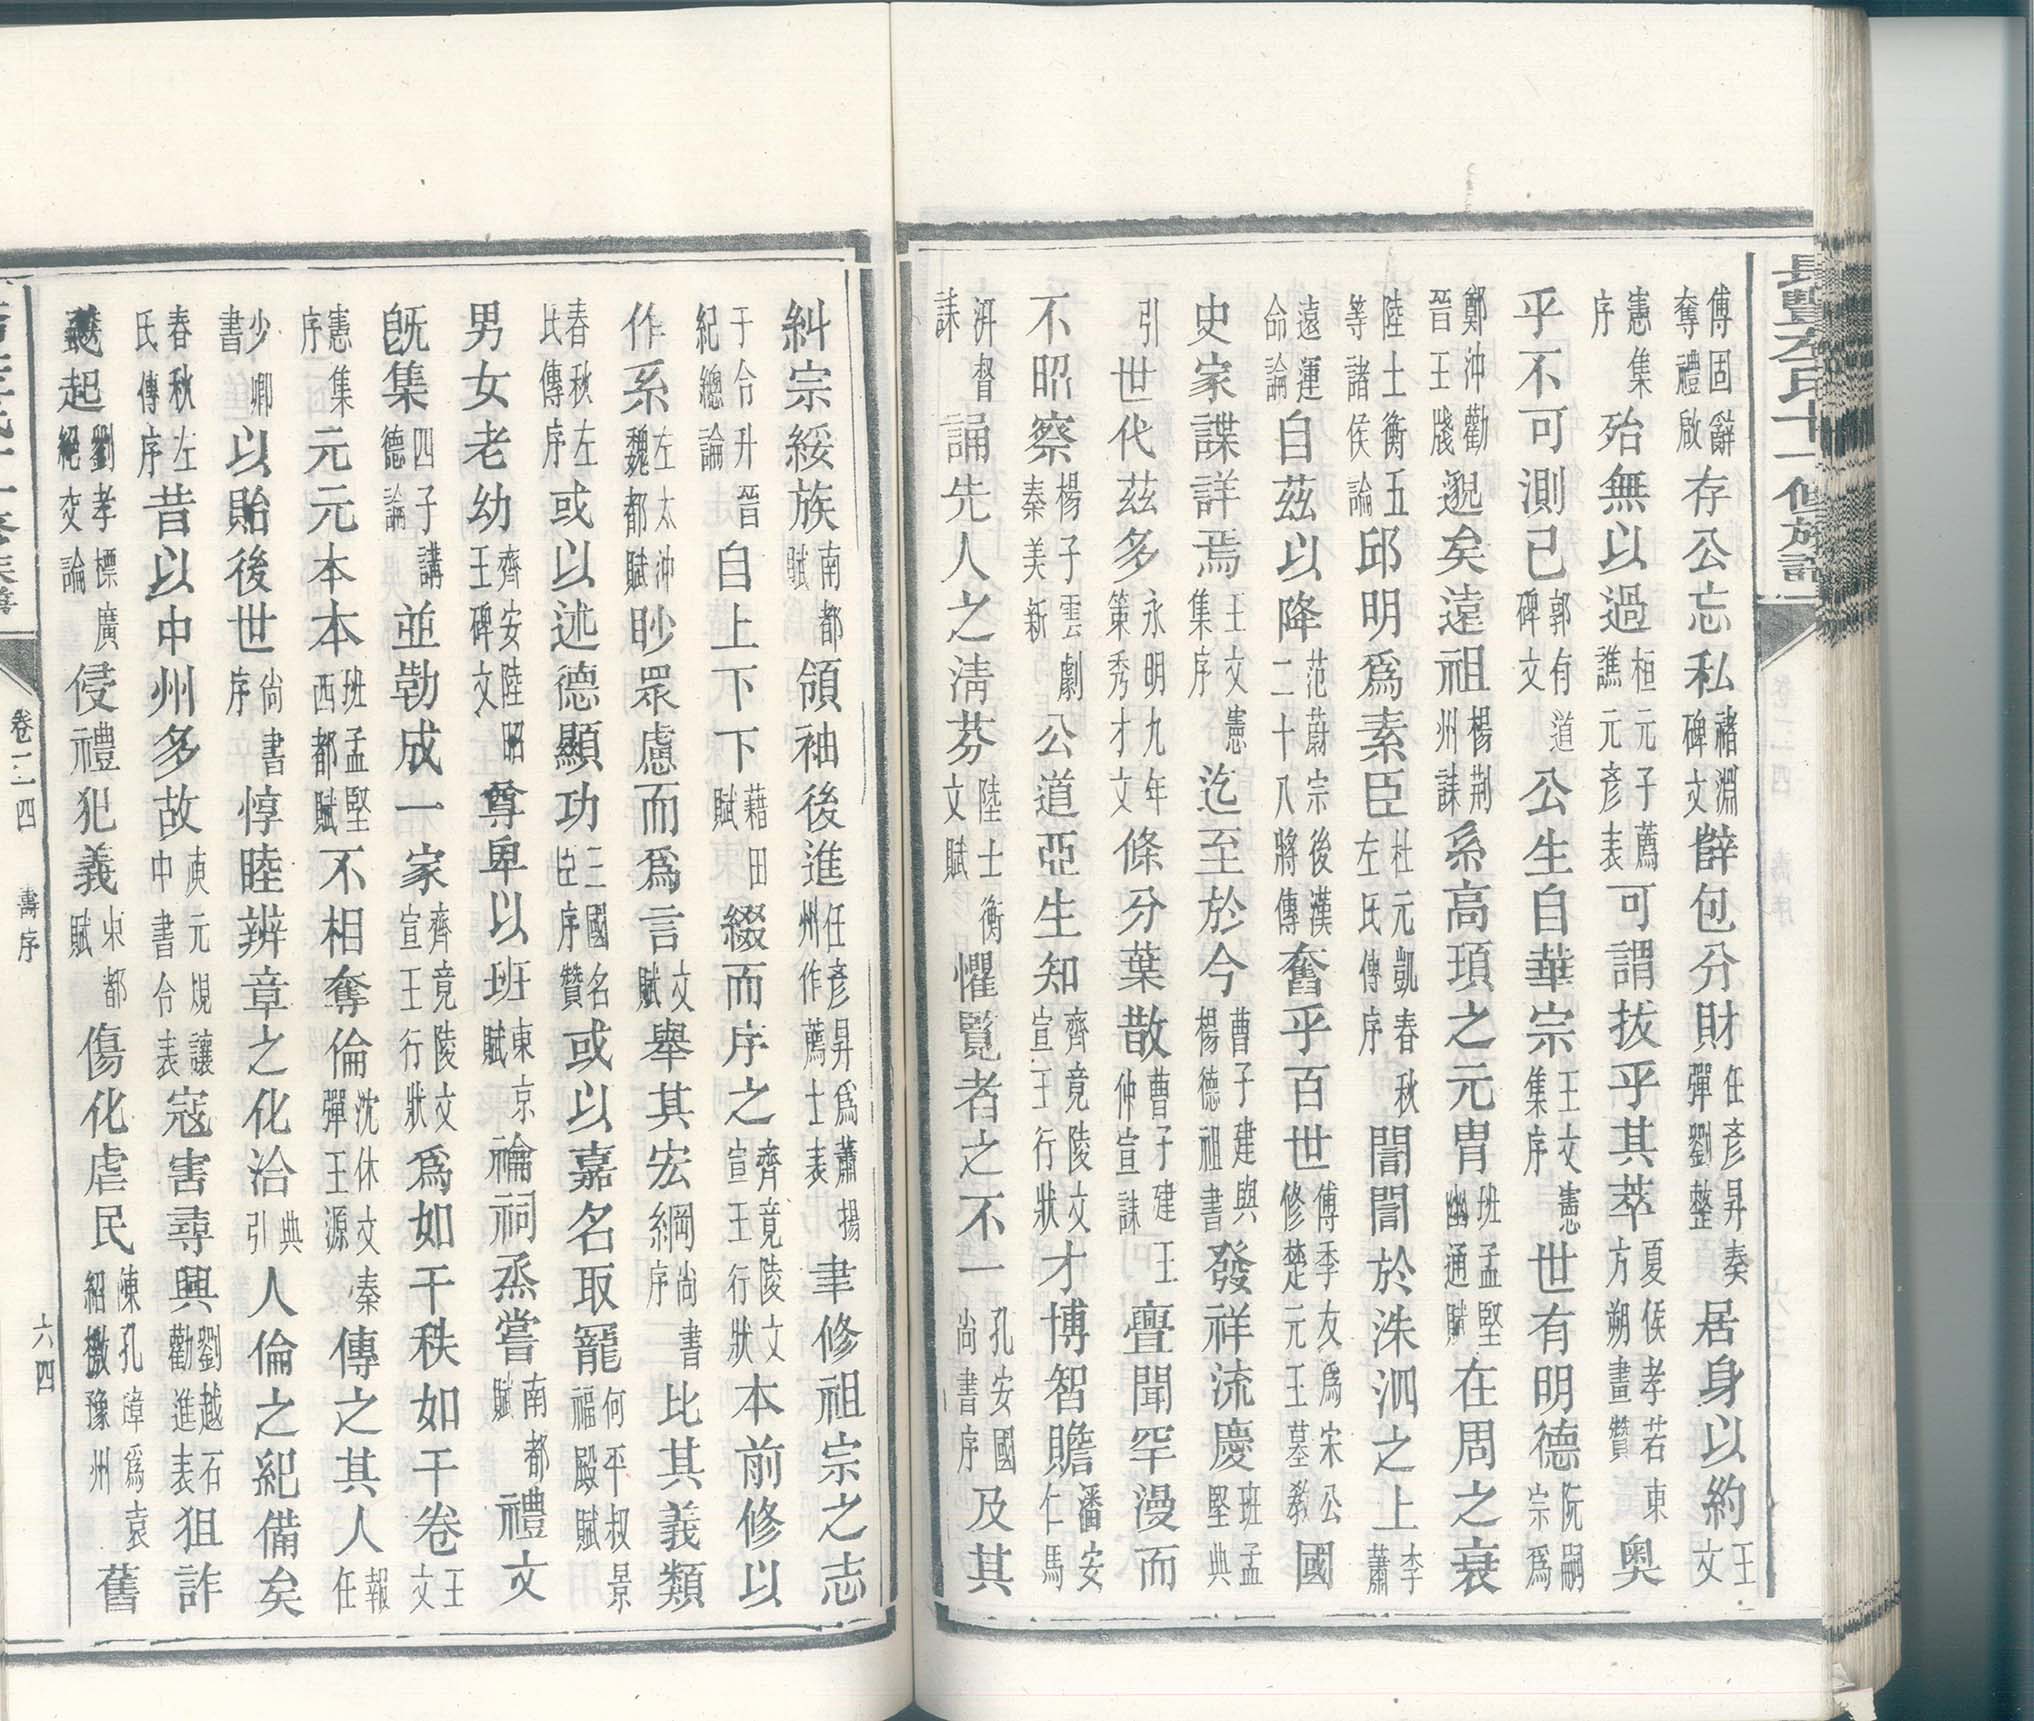 長豐李氏十一修族譜
傅固辭奪禮啟存公忘私褚淵碑文薛包分財任彥昇奏彈劉整居身以約王文
憲集序殆無以過桓元子薦譙元彥表可謂拔乎其萃夏侯孝若東方朔畫贊奧
乎不可測已郭有道碑文公生自華宗王文憲集序世有明德阮嗣宗爲
鄭沖勸晉王牋邈矣遠祖楊荆州誄系高頊之元胄班孟堅幽通賦在周之衰
陸士衡五等諸侯論邱明爲素臣杜元凱春秋左氏傳序誾誾於洙泗之上李蕭
遠運命論自茲以降范蔚宗後漢二十八將傳奮乎百世傅季友爲宋公修楚元王墓教國
史家諜詳焉王文憲集序迄至於今曹子建與楊德祖書發祥流慶班孟堅典
引世代茲多永明九年策秀才文條分葉散曹子建王仲宣誄亹聞罕漫而
不昭察楊子雲劇秦美新公道亞生知齊竟陵文宣王行狀才博智贍潘安仁馬
汧督誄誦先人之清芬陸士衡文賦懼覽者之不一孔安國尚書序及其
糾宗綏族南都賦領袖後進任彥昇爲蕭揚州作薦士表聿修祖宗之志
于令升晉紀總論自上下下藉田賦綴而序之齊竟陵文宣王行狀本前修以
作系左太沖魏都賦眇眾慮而爲言文賦舉其宏綱尚書序比其義類
春秋左氏傳序或以述德顯功三國名臣序贊或以嘉名取寵何平叔景福殿賦
男女老幼齊安陸昭王碑文尊卑以班東京賦禴祠烝嘗南都賦禮文
旣集四子講德論並勒成一家齊竟陵文宣王行狀爲如干秩如干卷王文
憲集序元元本本班孟堅西都賦不相奪倫沈休文秦彈王源傳之其人報任
少卿書以貽後世尚書序惇睦辨章之化洽典引人倫之紀備矣
春秋左氏傳序昔以中州多故庾元規讓中書令表寇害尋興劉越石勸進表狙詐
飈起劉孝標廣絕交論侵禮犯義東都賦傷化虐民陳孔璋爲袁紹檄豫州舊
卷二四 壽序 六四